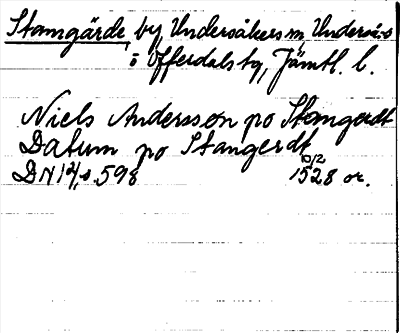 Stamgärde, by Undersåkers sn, Undersåkers
o Offerdals tg, Jämtl. l.
Niels Andersson po Stangerdt
Datum po Stangerdt
DN 12/1, s. 598 10/2 1528 or.